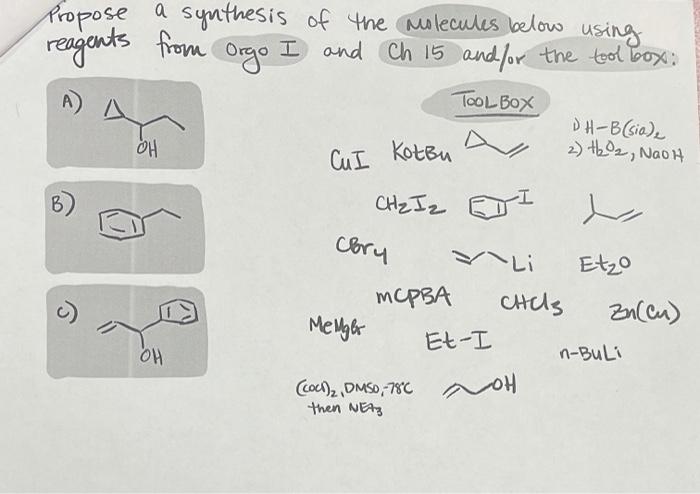 Propose a synthesis of the molecules below using
reagents from Orgo I and Ch 15 and/or the tool box:
A)
OH
TOOLBOX
CuI KOtBu
1) H-B(sia)2
2) H2O2, NaOH
B)
CH2I2
I
CBr4
Li
Et2O
C)
OH
mCPBA
CHCl3
Zn(Cu)
MeMgBr
Et-I
n-BuLi
(COCl)2, DMSO, -78°C
then NEt3
OH